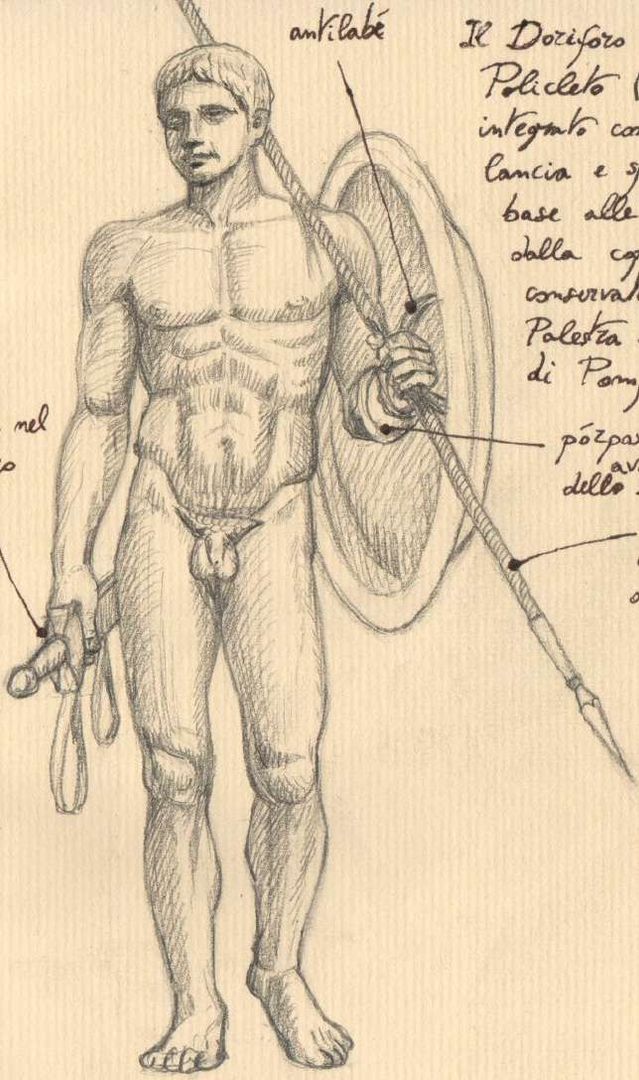 antilabé
Il Doriforo
Policleto (
integrato co
lancia e s
base alle
dalla co
conserva
Palestra
di Pom
nel
pórpa
av
dello